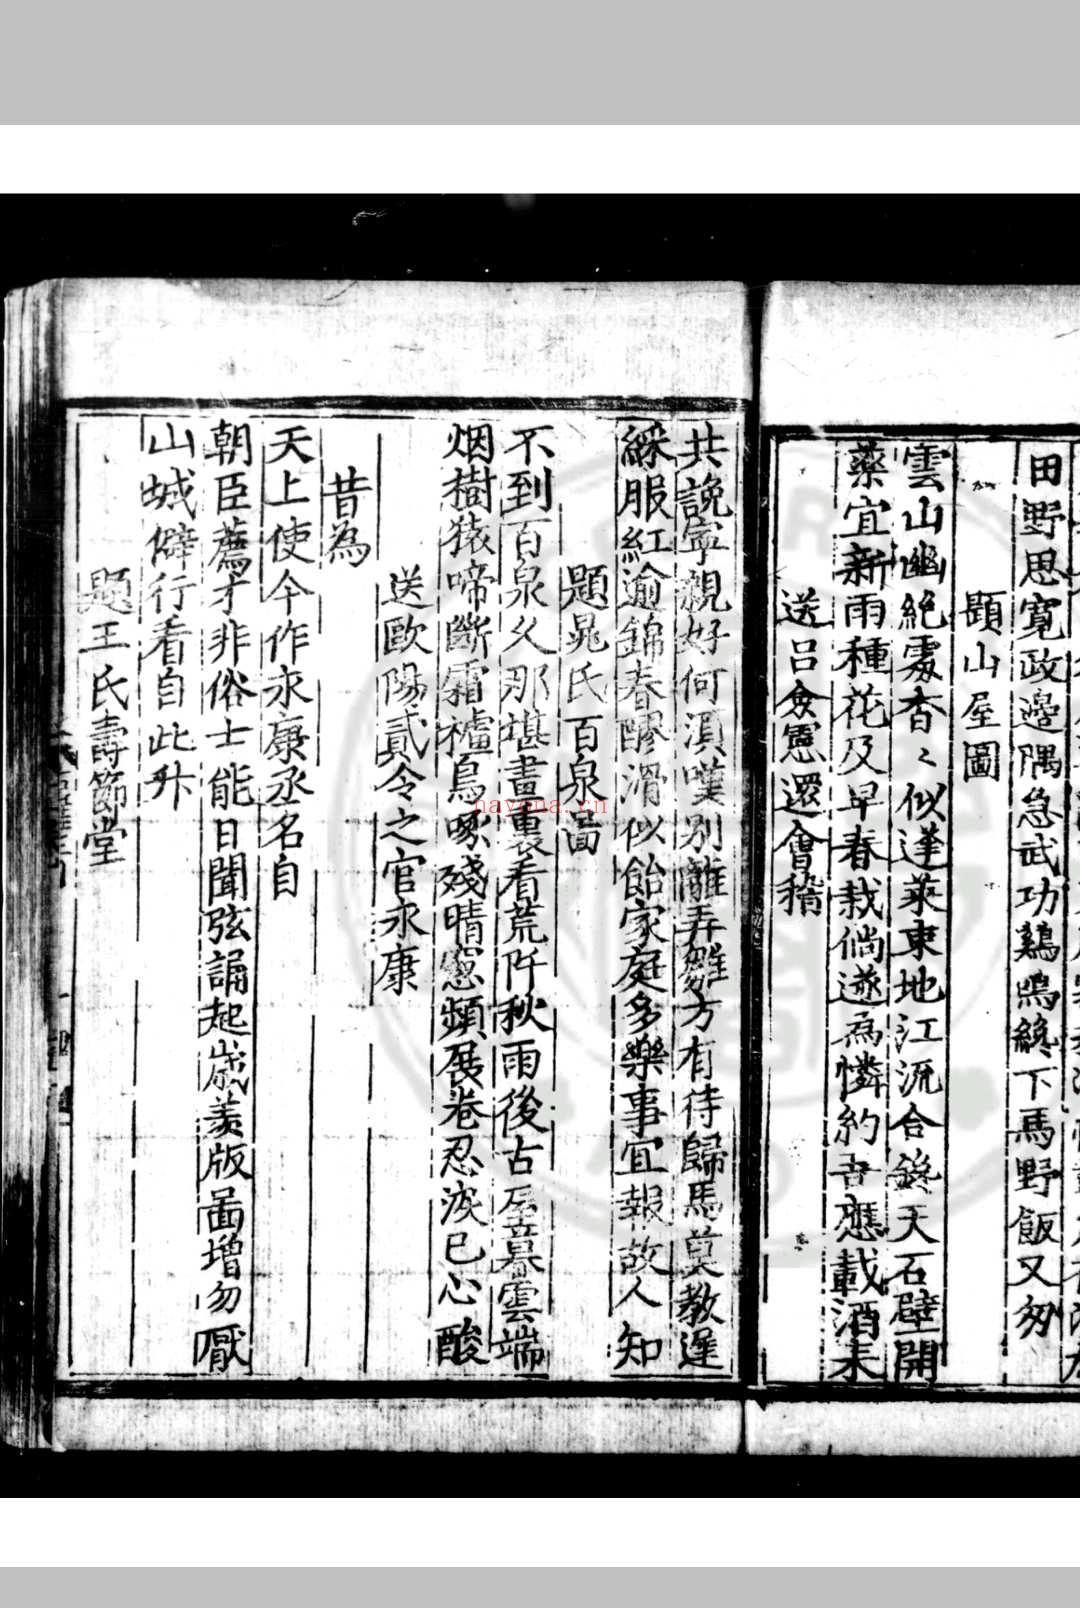 田野思寛政邊隅急武功鷄鳴終下馬野飯又匆
題山屋圖
雲山幽絶處杳〻似蓬萊東地江流合鏡天石壁開
藥宜新雨種花及早春栽倘遂為憐約吾應載酒来
送吕僉憲還會稽
共説寧親好何湏嘆别離弄雛方有待歸馬莫教遲
綵服紅逾錦春醪滑似飴家庭多樂事宜報故人知
題晁氏百泉啚
不到百泉久那堪畫裏看荒阡秋雨後古屋暮雲端
烟樹猿啼斷霜櫨鳥啄殘晴窓頻展巻忍淚已心酸
送歐陽貳令之官永康
昔為
天上使今作永康丞名自
朝臣薦才非俗士能日聞弦誦起歲羨版啚增勿厭
山城僻行看自此升
題王氏壽節堂
nayona.cn